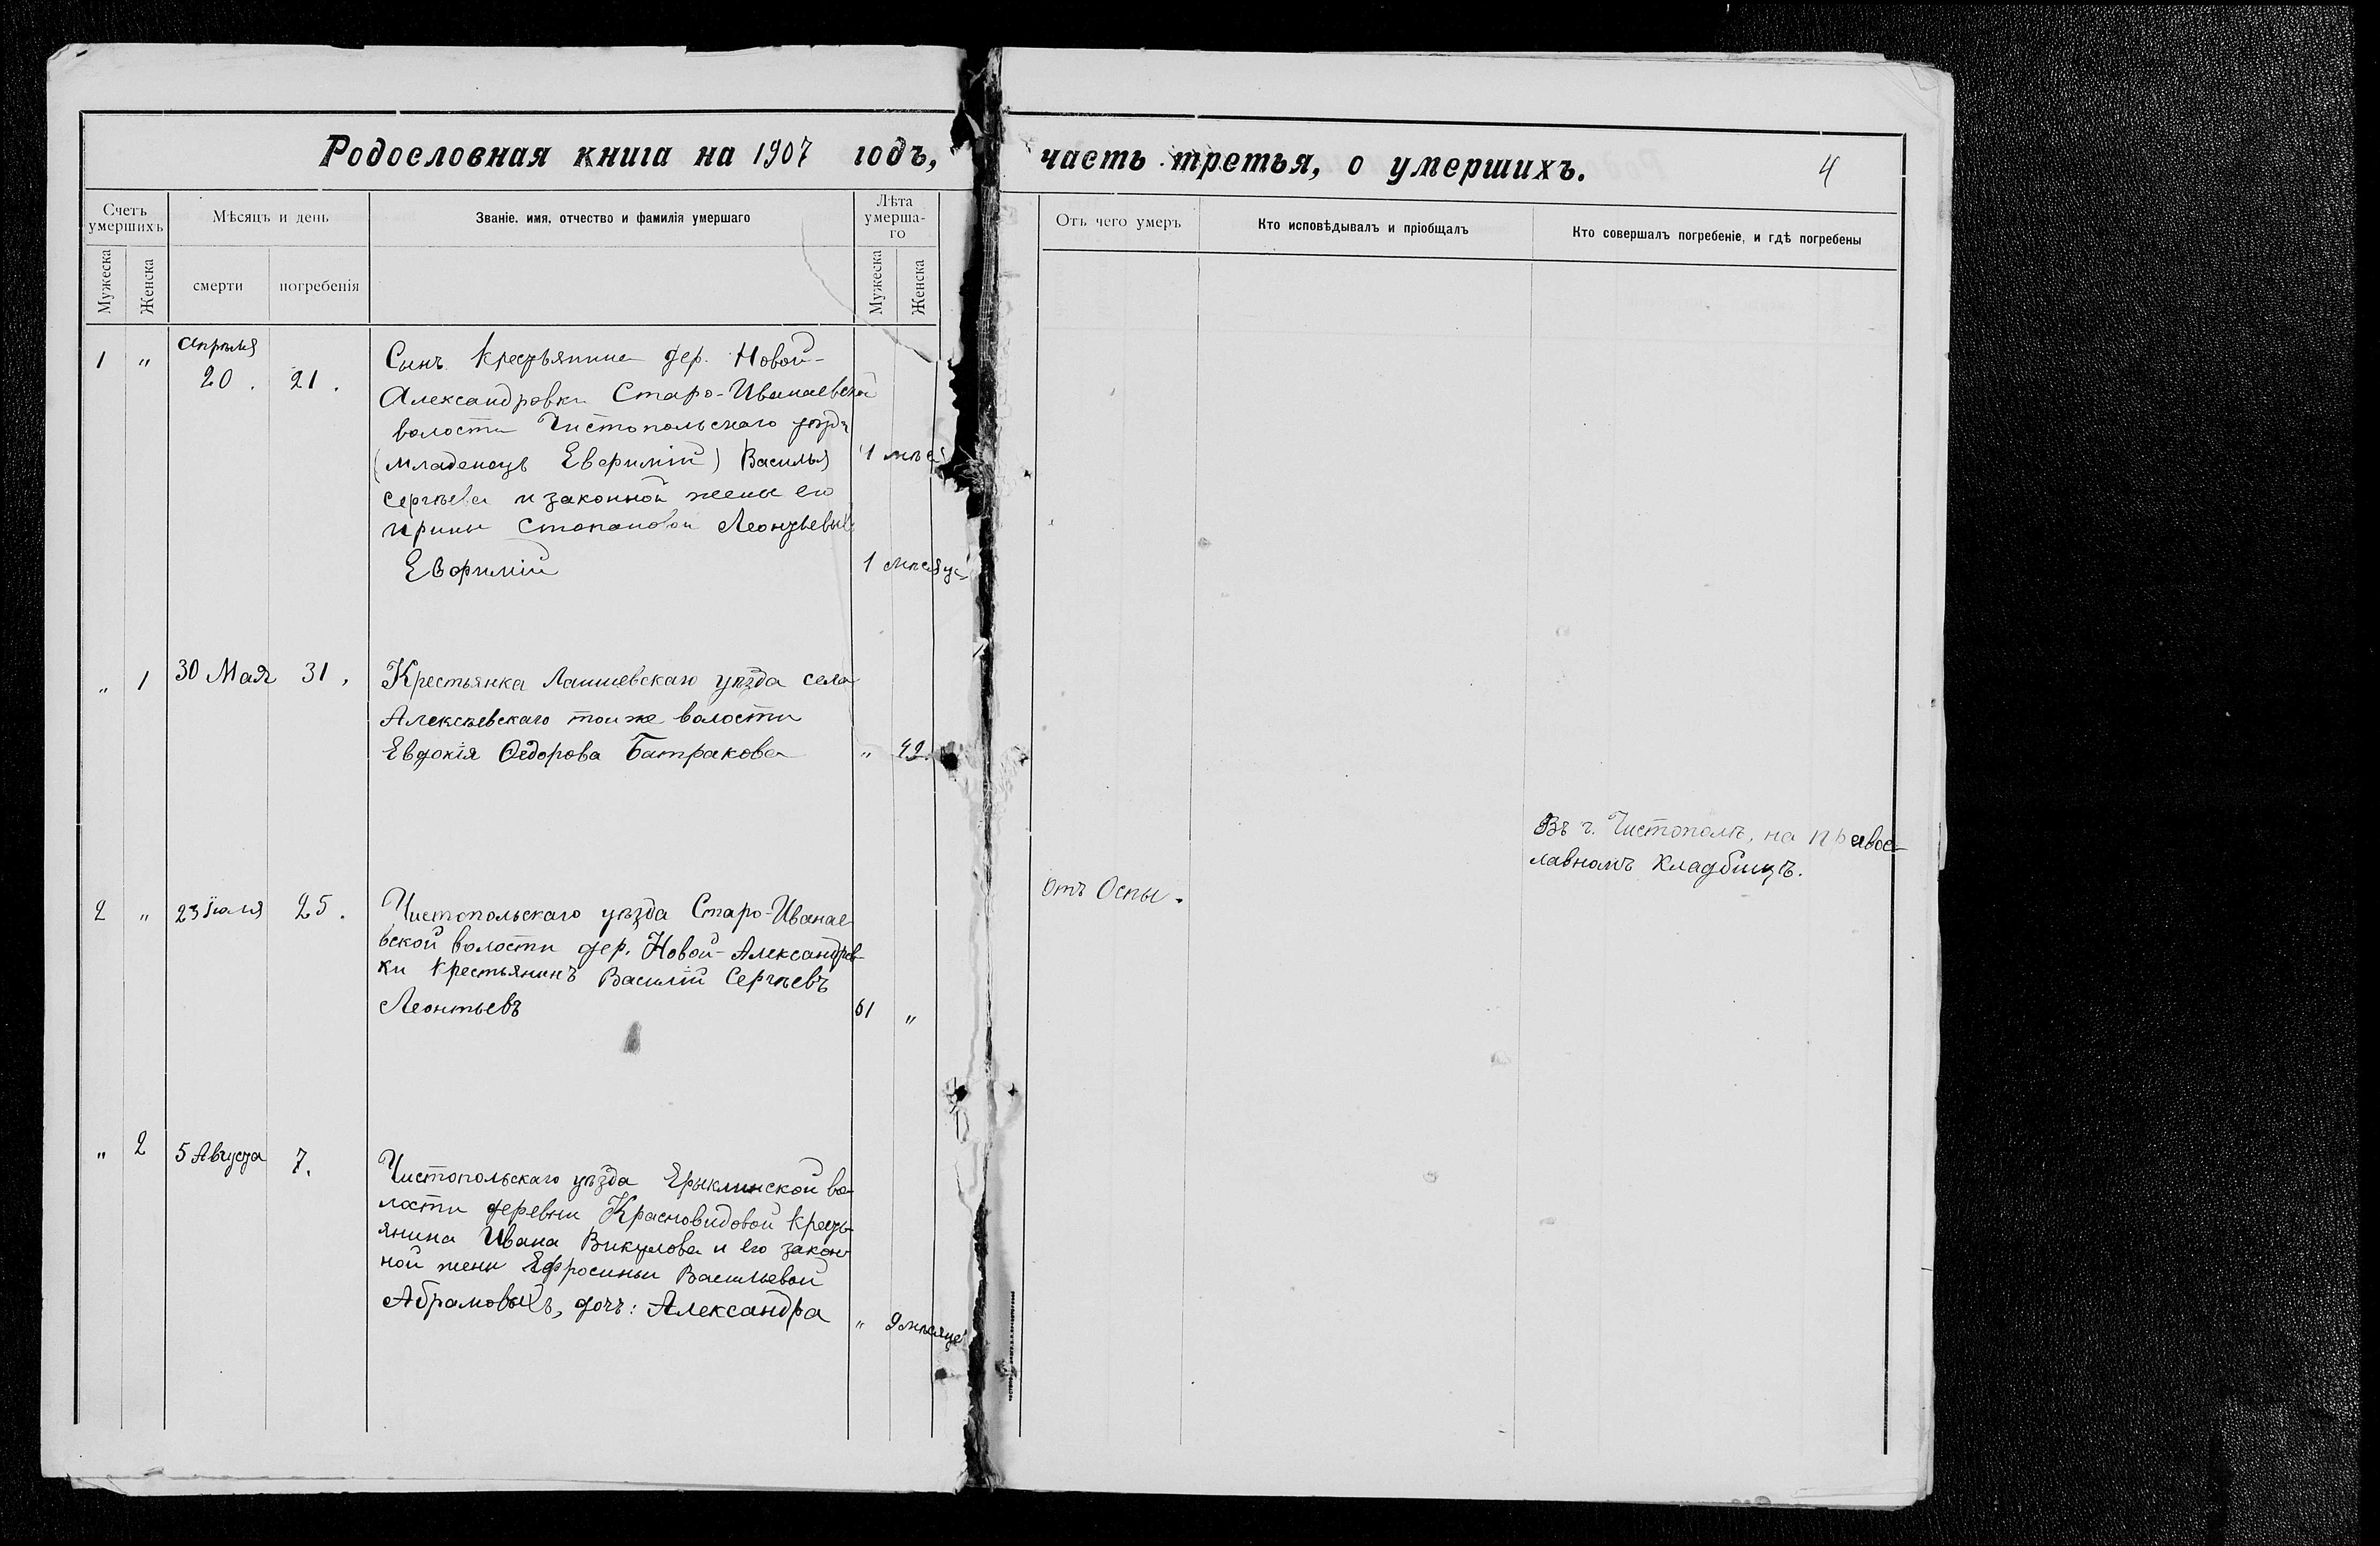 Родословная книга на 1907 годъ, часть третья, о умершихъ.
4
Счетъ умершихъ
Мѣсяцъ и день
Званіе, имя, отчество и фамилія умершаго
Лѣта умерша-
го
Отъ чего умеръ
Кто исповѣдывалъ и пріобщалъ
Кто совершалъ погребеніе, и гдѣ погребены
Мужеска
Женска
смерти
погребенія
Мужеска
Женска
1 " Апрѣля
20. 21.
Сынъ крестьянина дер. Новой-
Александровки Старо-Иванаевской
волости Чистопольскаго уѣзда
(младенецъ Евфимій) Василья 1 мѣс
Сергѣева и законной жены его
Ирины Степановой Леонтьевыхъ
Евфимій 1 мѣсяцъ
" 1 30 Мая 31.
Крестьянка Лаишевскаго уѣзда села
Алексѣевскаго той же волости
Евдокія Ѳедорова Батракова " 42.
2 " 23 Іюля 25.
Чистопольскаго уѣзда Старо-Иванае-
вской волости дер. Новой-Александров-
ки крестьянинъ Василій Сергѣевъ
Леонтьевъ 61 "
отъ Оспы.
Въ г. Чистополѣ, на правос-
лавномъ кладбищѣ.
" 2 5 Августа 7.
Чистопольскаго уѣзда Ерыклинской во-
лости деревни Красновидовой кресть-
янина Ивана Викулова и его закон-
ной жены Ефросиньи Васильевой
Абрамовыхъ, дочь: Александра " 9 мѣсяце